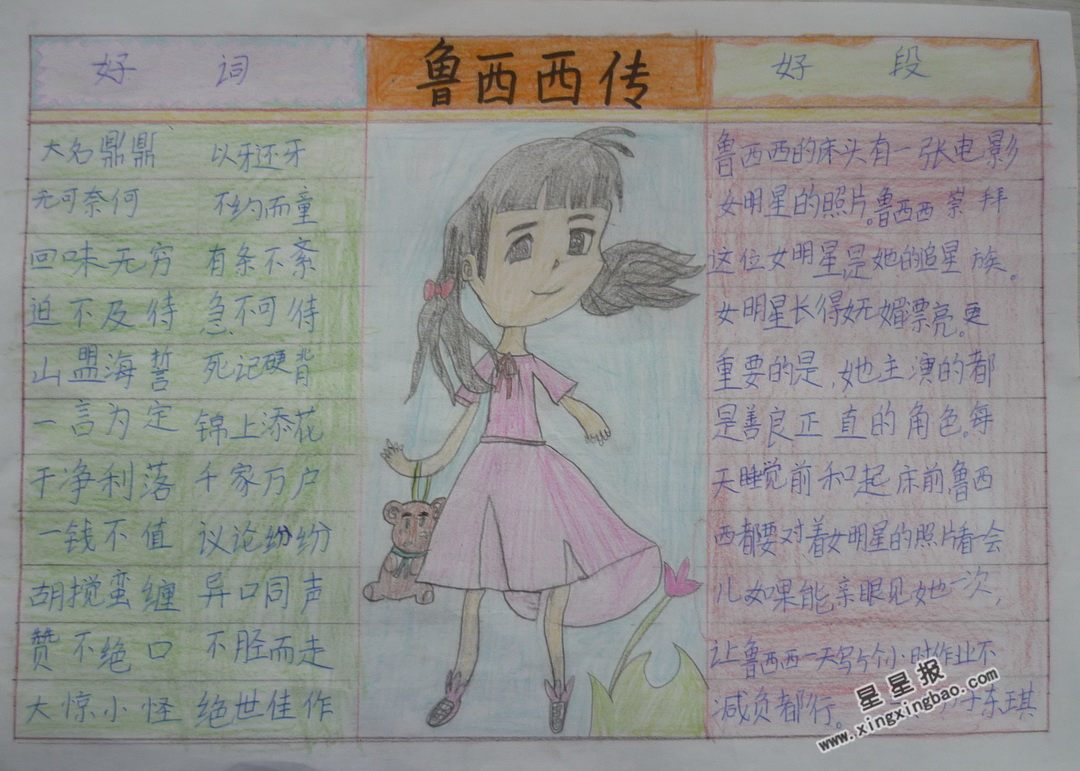 好 词
鲁西西传
好 段
大名鼎鼎 以牙还牙
无可奈何 不约而童
回味无穷 有条不紊
迫不及待 急不可待
山盟海誓 死记硬背
一言为定 锦上添花
干净利落 千家万户
一钱不值 议论纷纷
胡搅蛮缠 异口同声
赞不绝口 不胫而走
大惊小怪 绝世佳作
鲁西西的床头有一张电影
女明星的照片。鲁西西崇拜
这位女明星是她的追星族。
女明星长得妩媚漂亮。更
重要的是,她主演的都
是善良正直的角色。每
天睡觉前和起床前,鲁西
西都要对着女明星的照片看一会
儿女果能亲眼见她一次,
让鲁西西一天写个小时作业不
减负都行。
东琪
星星报
www.xingxingbao.com